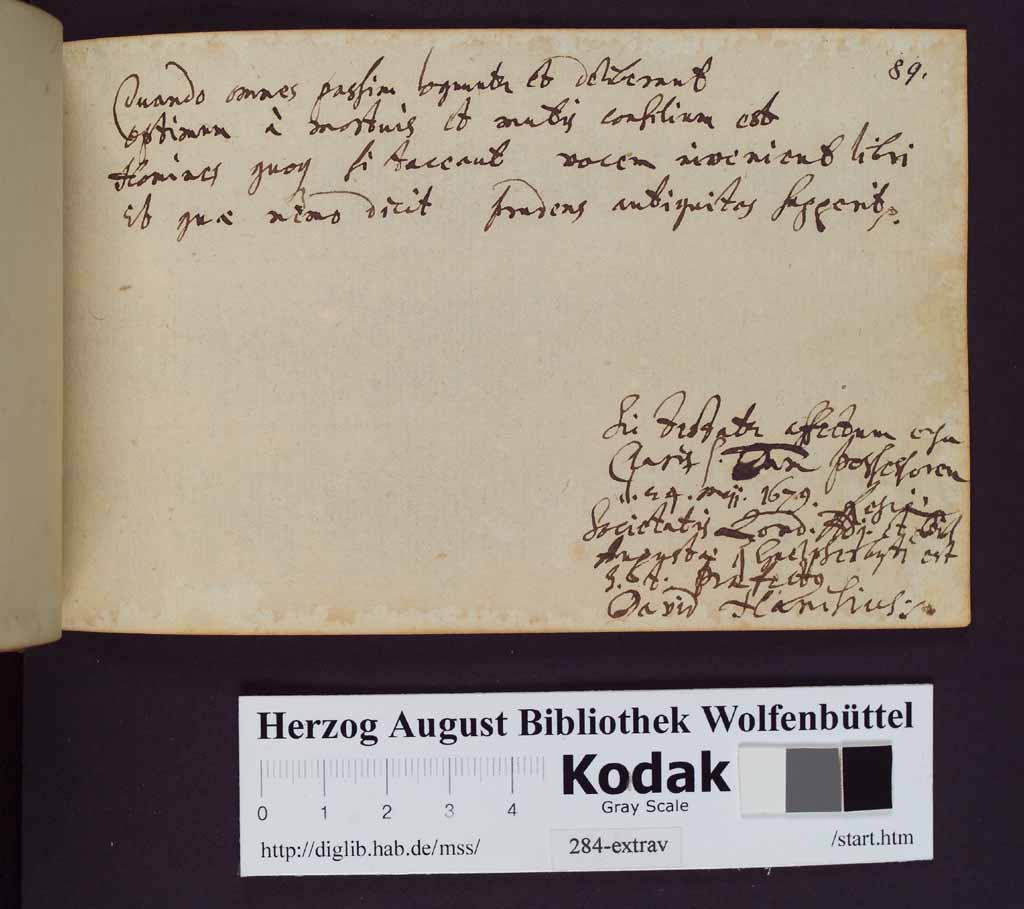 89.
Quando omnes passim loquuntur et deliberant
optimum à mortuis et mutis consilium est
Homines quoq si taceant vocem invenient libri
Et quæ nemo dicit prudens antiquitas suggerit.
Sic testatur affectum erga
Clariss. possessorem
d. 24. Maji. 1679. Regiæ
Societatis Lond. Adj. et Bibl
Augustæ Guelpherbyti est
Præfectus
David Hanisius
Herzog August Bibliothek Wolfenbüttel
0 1 2 3 4
Kodak
Gray Scale
http://diglib.hab.de/mss/
284-extrav
/start.htm